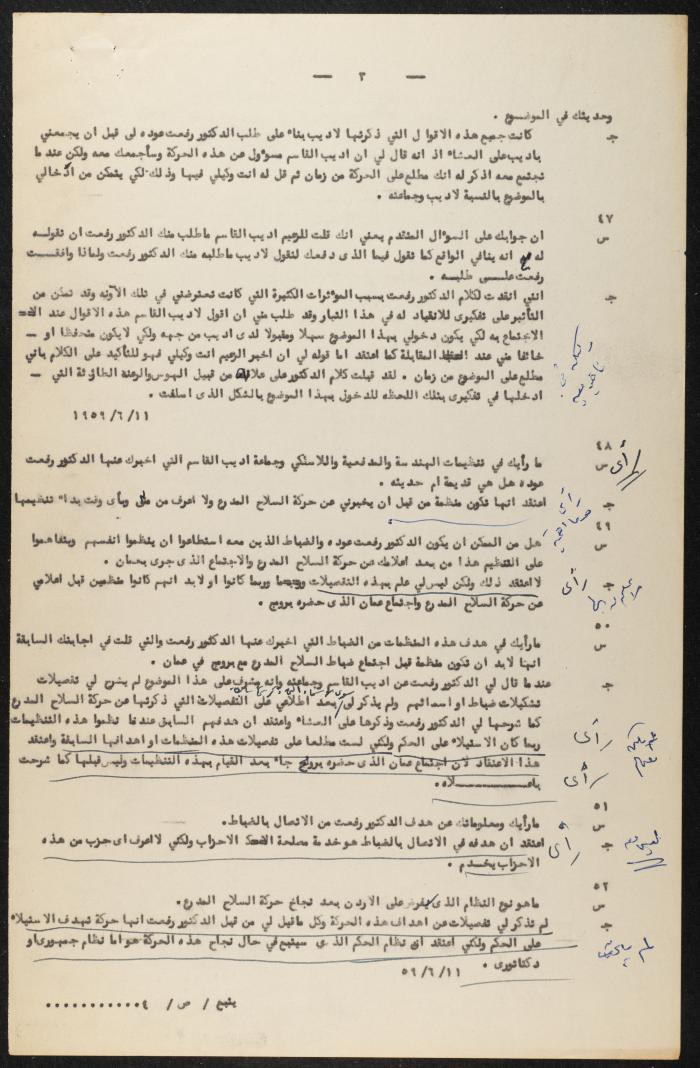 — ٣ —
وحديثك في الموضوع .
ج كانت جميع هذه الاقوال التي ذكرتها لاديب بناء على طلب الدكتور رفعت عوده لي قبل ان يجمعني
باديب على العشاء اذ انه قال لي ان اديب القاسم مسؤول عن هذه الحركة وسأجمعك معه ولكن عندما
تجتمع معه اذكر له انك مطلع على الحركة من زمان ثم قل له انت وكيلي فيها وذلك لكي يتمكن من ادخالي
بالموضوع بالنسبة لاديب وجماعته .
٤٧
س ان جوابك على السؤال المتقدم يعني انك قلت للزعيم اديب القاسم ماطلب منك الدكتور رفعت ان تقولـه
له انه ينافي الواقع كما تقول فيما الذى دفعك لتقول لاديب ماطلبه منك الدكتور رفعت ولماذا وافقـــت
رفعت علـــى طلبـه .
ج انني انقدت لكلام الدكتور رفعت بسبب المؤثرات الكثيرة التي كانت تعترضني في تلك الآونه وقد تمكن من
التأثير على تفكيرى للانقياد له في هذا التيار وقد طلب مني ان اقول لاديب القاسم هذه الاقوال عند
الاجتماع به لكي يكون دخولي بهذا الموضوع سهلا ومقبولا لدى اديب من جهه ولكي لايكون متحفظا او —
خائفا مني عند المقابلة كما اعتقد اما قوله لي ان اخبر الزعيم انت وكيلي فهو للتأكيد على الكلام باني
مطلع على الموضوع من زمان . لقد قبلت كلام الدكتور على علاته من قبيل الهوس والرعنة الطائشة التي —
ادخلها في تفكيرى بتلك اللحظه للدخول بهذا الموضوع بالشكل الذى اسلفت .
١٩٥٩/٦/١١
٤٨
س ما رأيك في تنظيمات الهندسة والمدفعية واللاسلكي وجماعة اديب القاسم التي اخبرك عنها الدكتور رفعت
رأى
عوده هل هي قديمة ام حديثه .
ج اعتقد انها تكون منظمة من قبل ان يخبرني عن حركة السلاح المدرع ولا اعرف من متى وبأى وقت بدأ تنظيمها
رأى
٤٩
س هل من الممكن ان يكون الدكتور رفعت عوده والضباط الذين معه استطاعوا ان ينظموا انفسهم ويتفاهموا
على التنظيم هذا من بعد اعلامك عن حركة السلاح المدرع والاجتماع الذى جرى بعمان .
ج لااعتقد ذلك ولكن ليس لي علم بهذه التفصيلات وربما كانوا او لابد انهم كانوا منظمين قبل اعلامي
رأى
عن حركة السلاح المدرع واجتماع عمان الذى حضره بروبج .
٥٠
س مارأيك في هدف هذه المنظمات من الضباط التي اخبرك عنها الدكتور رفعت والتي قلت في اجابتك السابقة
انها لابد ان تكون منظمة قبل اجتماع ضباط السلاح المدرع مع بروبج في عمان .
ج عندما قال لي الدكتور رفعت عن اديب القاسم وجماعته وانه مشرف على هذا الموضوع لم يشرح لي تفصيلات
تشكيلات ضباط او اسمائهم ولم يذكر لي بعد اطلاعي على التفصيلات التي ذكرتها عن حركة السلاح المدرع
كما شرحها لي الدكتور رفعت وذكرها على العشاء واعتقد ان هدفهم السابق عندما نظموا هذه التنظيمات
ربما كان الاستيلاء على الحكم ولكني لست مطلعا على تفصيلات هذه المنظمات او اهدافها السابقة واعتقد
رأى
هذا الاعتقاد لان اجتماع عمان الذى حضره بروبج جاء بعد القيام بهذه التنظيمات وليس قبلها كما شرحت
باعـــــــلاه .
رأى
٥١
س مارأيك ومعلوماتك عن هدف الدكتور رفعت من الاتصال بالضباط .
ج اعتقد ان هدفه في الاتصال بالضباط هو خدمة مصلحة الاحزاب ولكني لااعرف اى حزب من هذه
رأى
الاحزاب يخدم .
٥٢
س ماهو نوع النظام الذى يفرض على الاردن بعد نجاح حركة السلاح المدرع .
ج لم تذكر لي تفصيلات عن اهداف هذه الحركة وكل ماقيل لي من قبل الدكتور رفعت انها حركة تهدف الاستيلاء
على الحكم ولكني اعتقد اى نظام الحكم الذى سيتبع في حال نجاح هذه الحركة هو اما نظام جمهورى او
دكتاتورى . ٥٩/٦/١١
يتبع / ص / ٤ ............